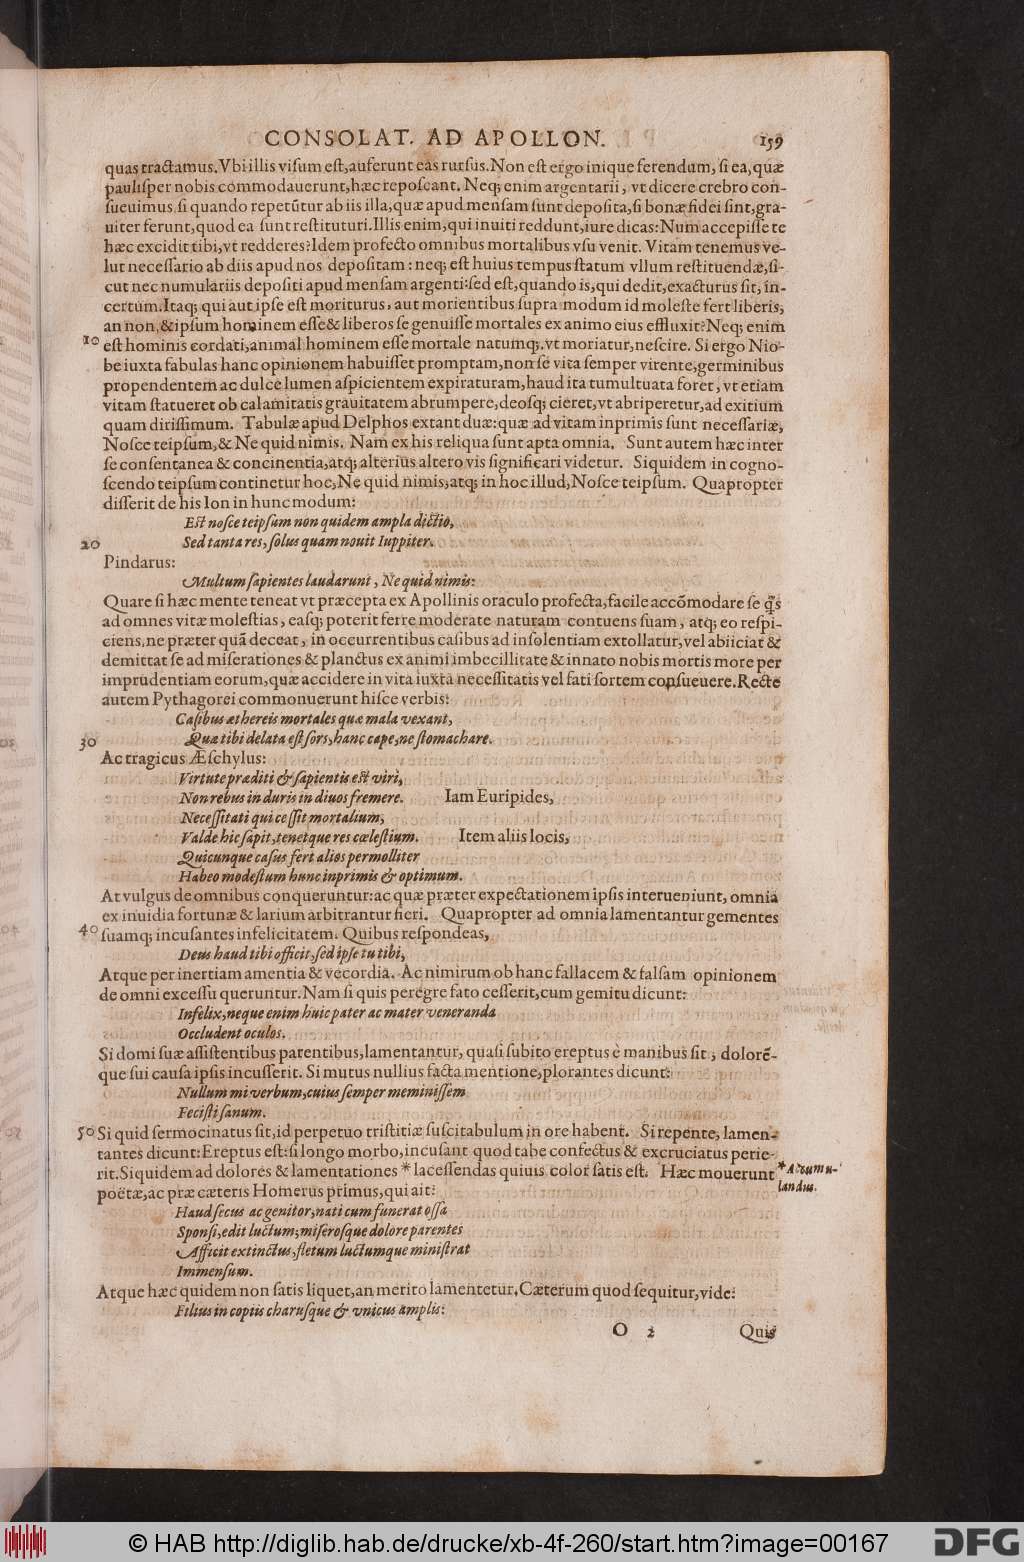 CONSOLAT. AD APOLLON. 159
quas tractamus. Vbi illis visum est, auferunt eas rursus. Non est ergo inique ferendum, si ea, quæ
paulisper nobis commodauerunt, hæc reposcant. Neq; enim argentarii, vt dicere crebro con-
sueuimus, si quando repetūtur ab iis illa, quæ apud mensam sunt deposita, si bonæ fidei sint, gra-
uiter ferunt, quod ea sunt restituturi. Illis enim, qui inuiti reddunt, iure dicas: Num accepisse te
hæc excidit tibi, vt redderes? Idem profecto omnibus mortalibus vsu venit. Vitam tenemus ve-
lut necessario ab diis apud nos depositam: neq; est huius tempus statum vllum restituendæ, si-
cut nec numulariis depositi apud mensam argenti: sed est, quando is, qui dedit, exacturus sit, in-
certum. Itaq; qui aut ipse est moriturus, aut morientibus supra modum id moleste fert liberis,
an non, & ipsum hominem esse & liberos se genuisse mortales ex animo eius effluxit? Neq; enim
10 est hominis cordati, animal hominem esse mortale natumq;, vt moriatur, nescire. Si ergo Nio-
be iuxta fabulas hanc opinionem habuisset promptam, non se vita semper virente, germinibus
propendentem ac dulce lumen aspicientem expiraturam, haud ita tumultuata foret, vt etiam
vitam statueret ob calamitatis grauitatem abrumpere, deosq; cieret, vt abriperetur, ad exitium
quam dirissimum. Tabulæ apud Delphos extant duæ: quæ ad vitam inprimis sunt necessariæ,
Nosce teipsum, & Ne quid nimis. Nam ex his reliqua sunt apta omnia. Sunt autem hæc inter
se consentanea & concinentia, atq; alterius altero vis significari videtur. Siquidem in cogno-
scendo teipsum continetur hoc, Ne quid nimis, atq; in hoc illud, Nosce teipsum. Quapropter
disserit de his Ion in hunc modum:
Est nosce teipsum non quidem ampla dictio,
20 Sed tanta res, solus quam nouit Iuppiter.
Pindarus:
Multum sapientes laudarunt, Ne quid nimis:
Quare si hæc mente teneat vt præcepta ex Apollinis oraculo profecta, facile accōmodare se q̃s
ad omnes vitæ molestias, easq; poterit ferre moderate naturam contuens suam, atq; eo respi-
ciens, ne præter quā deceat, in occurrentibus casibus ad insolentiam extollatur, vel abiiciat &
demittat se ad miserationes & planctus ex animi imbecillitate & innato nobis mortis more per
imprudentiam eorum, quæ accidere in vita iuxta necessitatis vel fati sortem consueuere. Recte
autem Pythagorei commonuerunt hisce verbis:
Casibus æthereis mortales quæ mala vexant,
30 Quæ tibi delata est sors, hanc cape, ne stomachare.
Ac tragicus Æschylus:
Virtute præditi & sapientis est viri,
Non rebus in duris in diuos fremere. Iam Euripides,
Necessitati qui cessit mortalium,
Valde hic sapit, tenetque res cælestium. Item aliis locis,
Quicunque casus fert alios permolliter
Habeo modestum hunc inprimis & optimum.
At vulgus de omnibus conqueruntur: ac quæ præter expectationem ipsis interueniunt, omnia
ex inuidia fortunæ & larium arbitrantur fieri. Quapropter ad omnia lamentantur gementes
40 suamq; incusantes infelicitatem. Quibus respondeas,
Deus haud tibi officit, sed ipse tu tibi,
Atque per inertiam amentia & vecordia. Ac nimirum ob hanc fallacem & falsam opinionem
de omni excessu queruntur. Nam si quis peregre fato cesserit, cum gemitu dicunt:
Infelix, neque enim huic pater ac mater veneranda
Occludent oculos.
Si domi suæ assistentibus parentibus, lamentantur, quasi subito ereptus è manibus sit, dolorē-
que sui causa ipsis incusserit. Si mutus nullius facta mentione, plorantes dicunt:
Nullum mi verbum, cuius semper meminissem
Fecisti sanum.
50 Si quid sermocinatus sit, id perpetuo tristitiæ suscitabulum in ore habent. Si repente, lamen-
tantes dicunt: Ereptus est: si longo morbo, incusant quod tabe confectus & excruciatus perie-
rit. Siquidem ad dolores & lamentationes * lacessendas quiuis color satis est. Hæc mouerunt * Accumu-
poëtæ, ac præ cæteris Homerus primus, qui ait: landus.
Haud secus ac genitor, nati cum funerat ossa
Sponsi, edit luctum; miserosque dolore parentes
Afficit extinctus, fletum luctumque ministrat
Immensum.
Atque hæc quidem non satis liquet, an merito lamentetur. Cæterum quod sequitur, vide:
Filius in copiis charusque & vnicus amplis:
O 2 Quis
© HAB http://diglib.hab.de/drucke/xb-4f-260/start.htm?image=00167 DFG